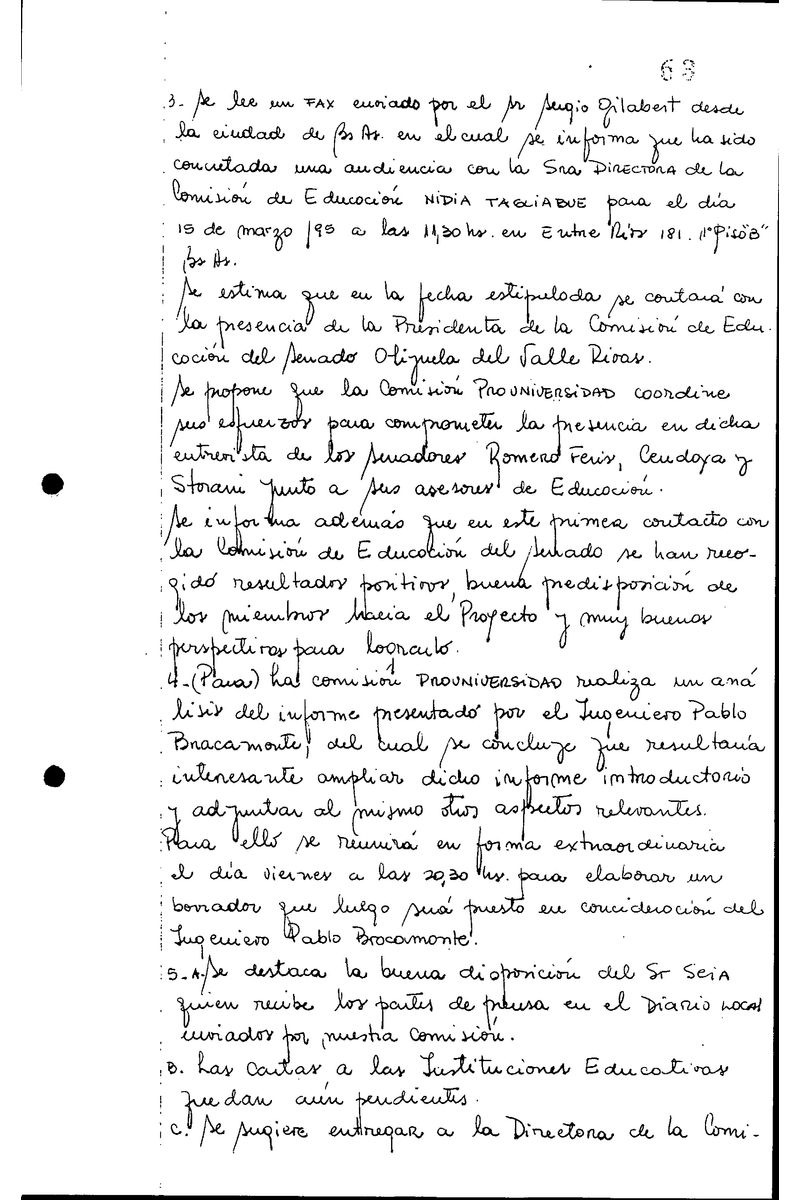 63
3- Se lee un FAX enviado por el Sr Sergio Gilabert desde
la ciudad de Bs As. en el cual se informa que ha sido
concretada una audiencia con la Sra DIRECTORA de la
Comisión de Educación NIDIA TAGLIABUE para el día
15 de marzo /95 a las 11,30 hs. en Entre Ríos 181. 1º Piso "B"
Bs As.
Se estima que en la fecha estipulada se contará con
la presencia de la Presidenta de la Comisión de Edu-
cación del Senado Olijuela del Valle Rivas.
Se propone que la Comisión PROUNIVERSIDAD coordine
sus esfuerzos para comprometer la presencia en dicha
entrevista de los Senadores Romero Feris, Cendoya y
Storani junto a sus asesores de Educación.
Se informa además que en este primer contacto con
la Comisión de Educación del Senado se han reco-
gido resultados positivos, buena predisposición de
los miembros hacia el Proyecto y muy buenas
perspectivas para lograrlo.
4-(Para) La comisión PROUNIVERSIDAD realiza un aná
lisis del informe presentado por el Ingeniero Pablo
Bracamonte; del cual se concluye que resultaría
interesante ampliar dicho informe introductorio
y adjuntar al mismo otros aspectos relevantes.
Para ello se reunirá en forma extraordinaria
el día viernes a las 20,30 hs. para elaborar un
borrador que luego será puesto en concideración del
Ingeniero Pablo Bracamonte.
5-A. Se destaca la buena disposición del Sr SEIA
quien recibe los partes de prensa en el DIARIO LOCAL
enviados por nuestra comisión.
B. Las Cartas a las Instituciones Educativas
quedan aún pendientes.
C. Se sugiere entregar a la Directora de la Comi-